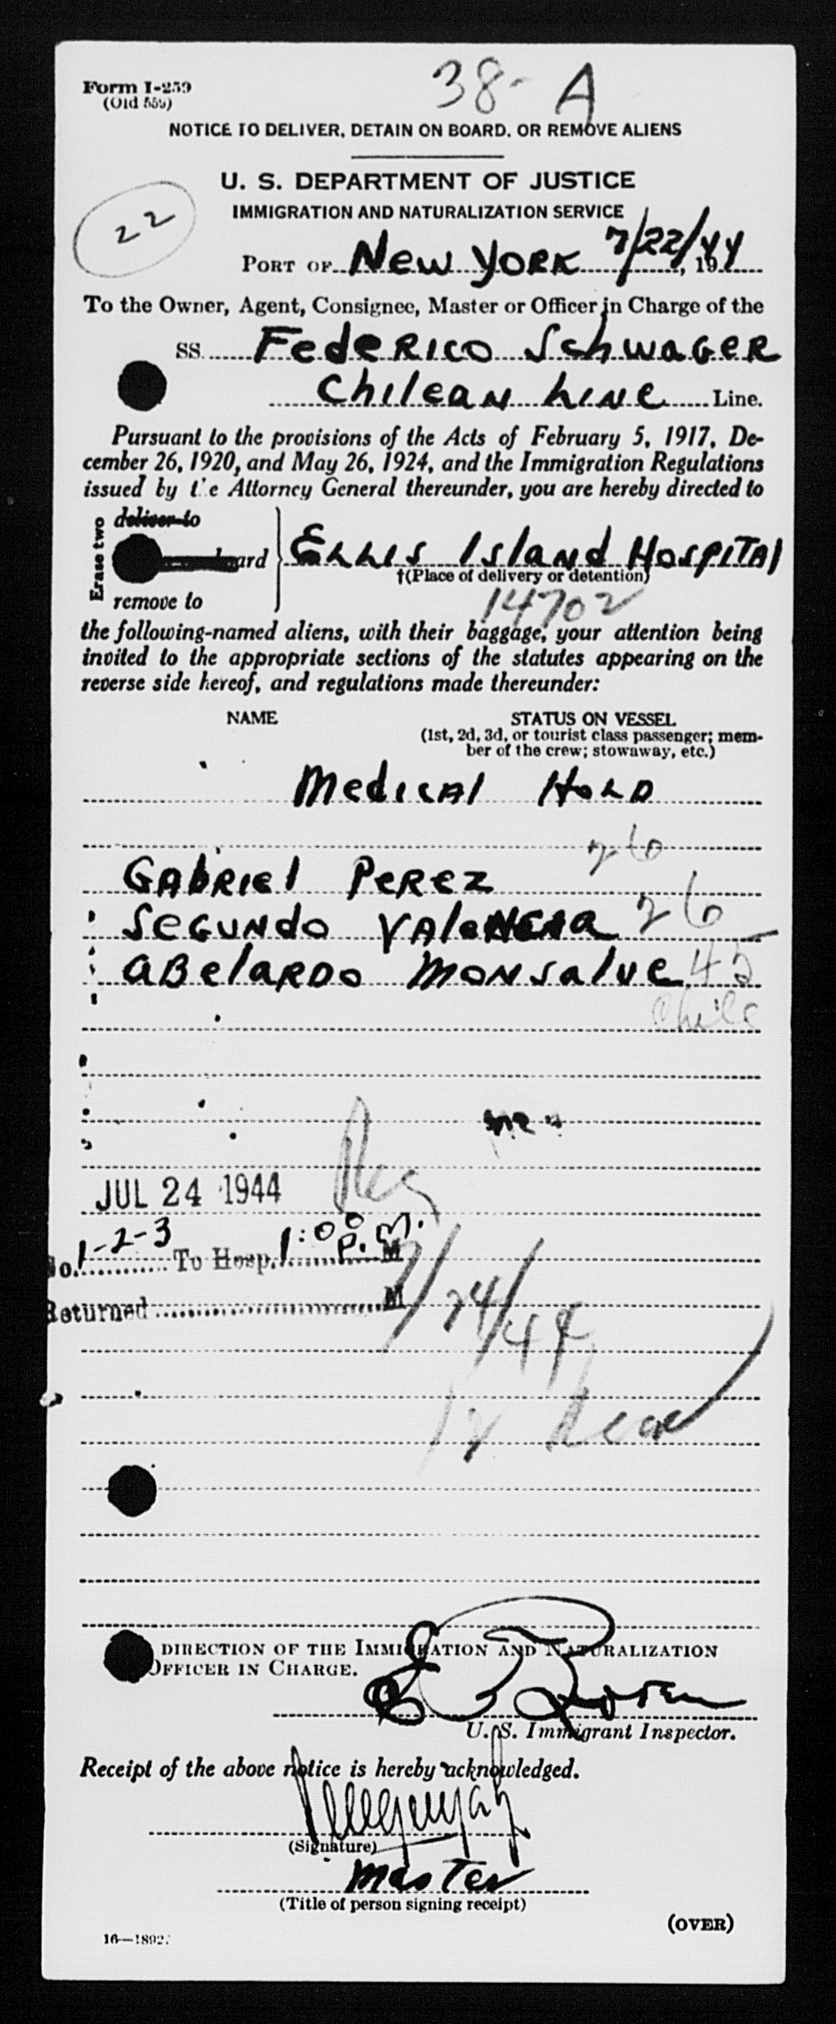 38- A
Form I-259
(Old 559)
NOTICE TO DELIVER, DETAIN ON BOARD, OR REMOVE ALIENS
U. S. DEPARTMENT OF JUSTICE
22
IMMIGRATION AND NATURALIZATION SERVICE
PORT OF New York 7/22/44, 19
To the Owner, Agent, Consignee, Master or Officer in Charge of the
SS. Federico Schwager
Chilean Line Line.
Pursuant to the provisions of the Acts of February 5, 1917, De-
cember 26, 1920, and May 26, 1924, and the Immigration Regulations
issued by the Attorney General thereunder, you are hereby directed to
Erase two
deliver to
Ellis Island Hospital
†(Place of delivery or detention)
remove to
14702
the following-named aliens, with their baggage, your attention being
invited to the appropriate sections of the statutes appearing on the
reverse side hereof, and regulations made thereunder:
NAME STATUS ON VESSEL
(1st, 2d, 3d, or tourist class passenger; mem-
ber of the crew; stowaway, etc.)
Medical Hold
26
Gabriel Perez
Segundo 26
Abelardo Monsalve 45
Chile
JUL 24 1944
No. 1-2-3 To Hosp. 1:00 P.M. M
Returned M
7/24/44
DIRECTION OF THE IMMIGRATION AND NATURALIZATION
OFFICER IN CHARGE.
U. S. Immigrant Inspector.
Receipt of the above notice is hereby acknowledged.
(Signature)
Master
(Title of person signing receipt)
(OVER)